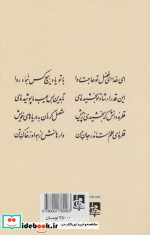 ای خدا ای فضل تو حاجت روا با تو یاد هیچ کس نبود روا
این قدر ارشاد تو بخشیده‌ای تا بدین بس عیب ما پوشیده‌ای
قطره دانش که بخشیدی ز پیش متصل گردان به دریاهای خویش
قطره‌ای علم است اندر جان من وارهانش از هوا وز خاک تن
تومان